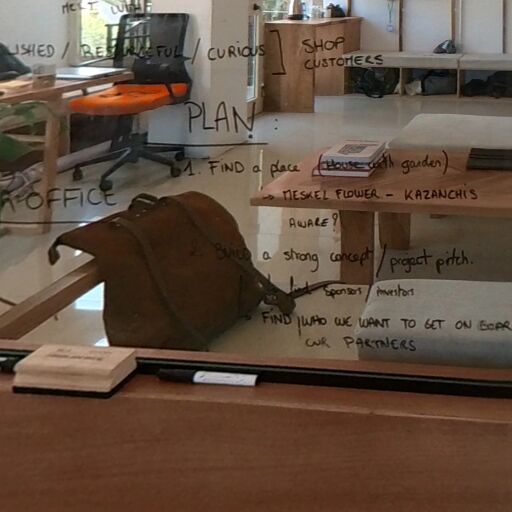 MEET WITH
LISHED / RESOURCEFUL / CURIOUS ] SHOP
CUSTOMERS
PLAN :
1. FIND a place (House with garden)
→ MESKEL FLOWER - KAZANCHIS
OFFICE
AWARE?
2. Build a strong concept / project pitch.
find sponsors / investors
→ FIND / WHO WE WANT TO GET ON BOAR
OUR PARTNERS